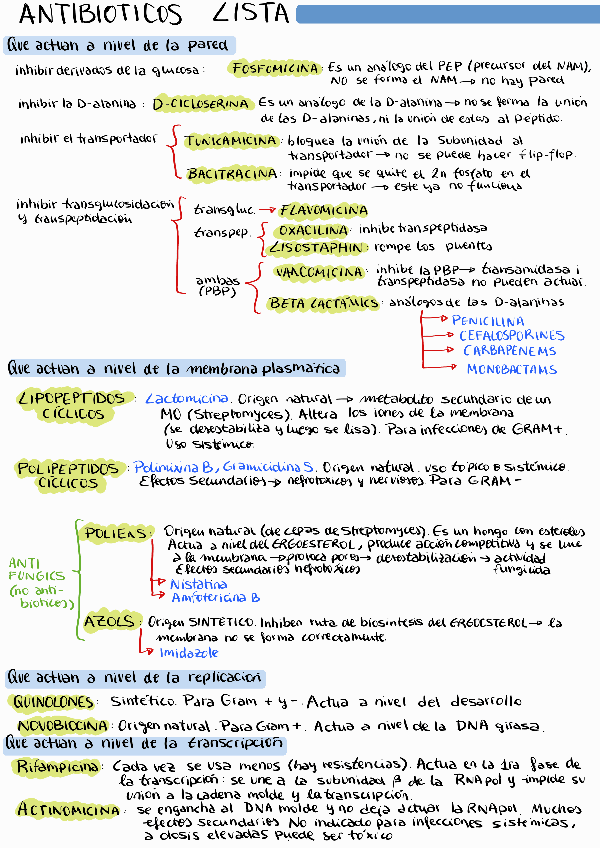 ANTIBIOTICOS LISTA
Que actuan a nivel de la pared
inhibir derivados de la glucosa: FOSFOMICINA: Es un análogo del PEP (precursor del NAM),
NO se forma el NAM → no hay pared
inhibir la D-alanina: D-CICLOSERINA Es un análogo de la D-alanina → no se forma la unión
de las D-alaninas, ni la unión de estas al péptido.
inhibir el transportador
TUNICAMICINA: bloquea la unión de la subunidad al
transportador → no se puede hacer flip-flop.
BACITRACINA: impide que se quite el 2n fosfato en el
transportador → este ya no funciona
inhibir transglucosidación
y transpeptidación
transgluc. → FLAVOMICINA
transpep. OXACILINA: inhibe transpeptidasa
LISOSTAPHIN: rompe los puentes
ambas
(PBP)
VANCOMICINA: inhibe la PBP → transamidasa i
transpeptidasa no pueden actuar.
BETA LACTÁMICS: análogos de las D-alaninas
PENICILINA
CEFALOSPORINES
CARBAPENEMS
MONOBACTAMS
Que actuan a nivel de la membrana plasmática
LIPOPEPTIDOS
CÍCLICOS
: Lactomicina. Origen natural → metabolito secundario de un
MO (Streptomyces). Altera los iones de la membrana
(se desestabiliza y luego se lisa). Para infecciones de GRAM+.
Uso sistémico.
POLIPEPTIDOS
CÍCLICOS
: Polimixina B, Gramicidina S. Origen natural. uso tópico o sistémico.
Efectos secundarios → nefrotoxicos y nerviosos Para GRAM -
ANTI
FUNGICS
(no anti-
bioticos)
POLIENS: Origen natural (de cepas de Streptomyces). Es un hongo con esteroles
Actua a nivel del ERGOESTEROL, produce acción competitiva y se une
a la membrana → provoca poros → desestabilización → actividad
fungicida
Efectos secundarios nefrotóxicos
Nistatina
Amfotericina B
AZOLS: Origen SINTÉTICO. Inhiben ruta de biosíntesis del ERGOESTEROL → la
membrana no se forma correctamente.
Imidazole
Que actuan a nivel de la replicación
QUINOLONES: Sintético. Para Gram + y -. Actua a nivel del desarrollo
NOVOBIOCINA: Origen natural. Para Gram +. Actua a nivel de la DNA girasa.
Que actuan a nivel de la transcripción
Rifampicina: Cada vez se usa menos (hay resistencias). Actua en la 1ra fase de
la transcripción: se une a la subunidad β de la RNA pol y impide su
unión a la cadena molde y la transcripción.
ACTINOMICINA: se engancha al DNA molde y no deja actuar la RNApol. Muchos
efectos secundarios No indicado para infecciones sistémicas,
a dosis elevadas puede ser tóxico